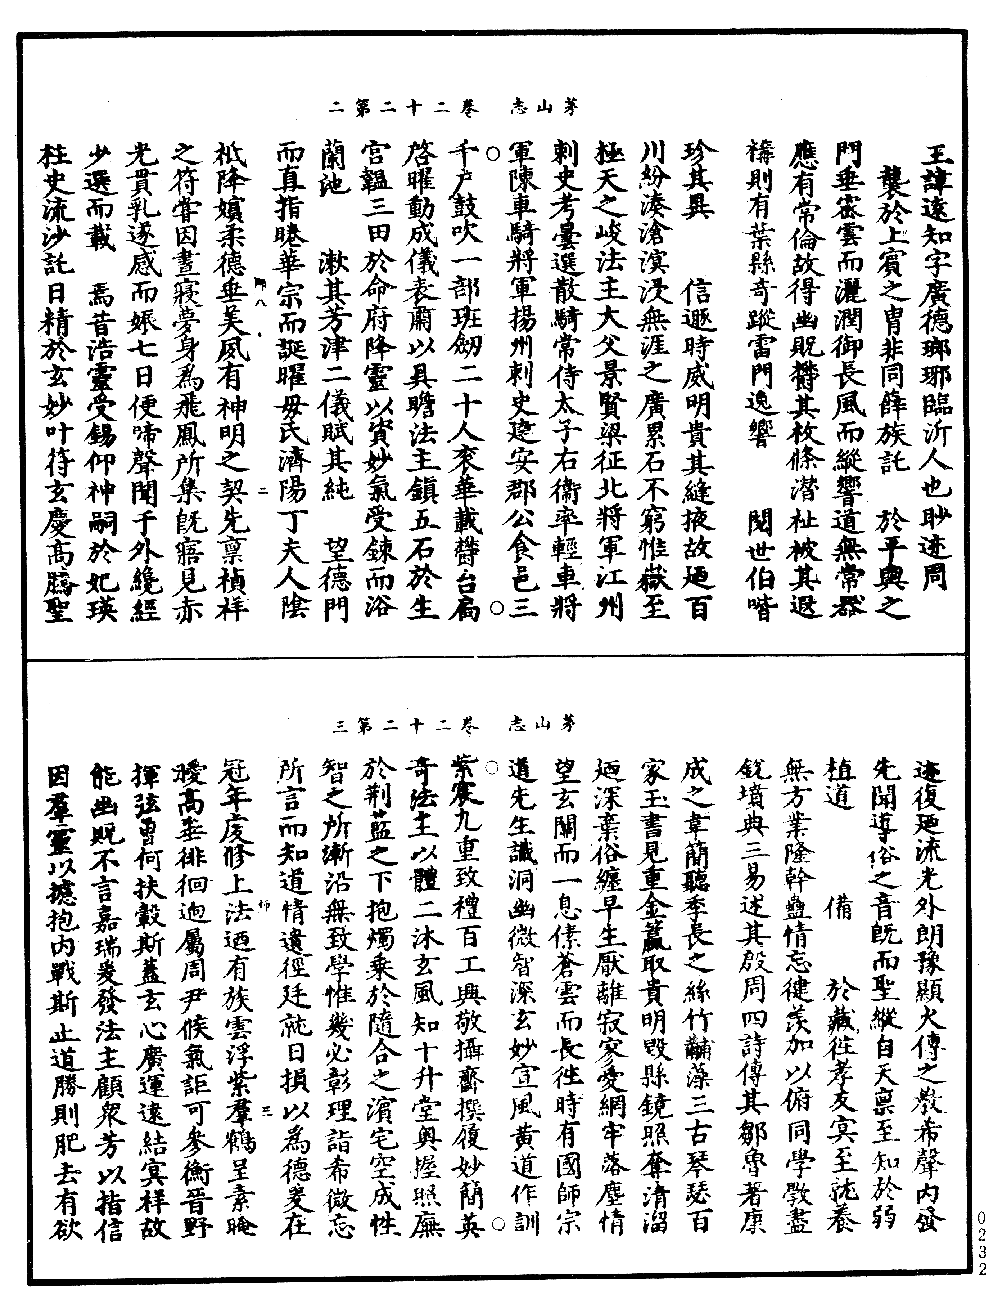 茅山志　卷二十二第二
王諱遠知字廣德瑯琊臨沂人也眇迹周
龔於上賓之胄非同薛族託　於平輿之
門垂密雲而灑潤御長風而縱響道無常器
應有常倫故得幽貺欝其枚條潛祉被其遐
禱則有葉縣奇蹤雷門逸響　閱世伯喈
珍其異　信遯時威明貴其縫掖故廼百
川紛湊滄溟浸無涯之廣累石不窮惟嶽至
極天之峻法主大父景賢梁征北將軍江州
刺史考曇選散騎常侍太子右衞率輕車將
軍陳車騎將軍揚州刺史建安郡公食邑三
千户鼓吹一部班劒二十人衮華載欝台扃
啓曜動成儀表肅以具瞻法主鎮五石於生
宮韞三田於命府降靈以資妙氣受鍊而浴
蘭池　漱其芳津二儀賦其純　望德門
而真指睠華宗而誕曜毋氏濟陽丁夫人陰
祇降嬪柔德垂美夙有神明之契先禀禎祥
之符甞因晝寢夢身為飛鳳所集旣寤見赤
光貫乳遂感而娠七日便啼聲聞于外纔經
少選而載　焉昔浩靈受錫仰神嗣於妃瑛
柱史流沙託日精於玄妙叶符玄慶髙膺聖
茅山志　卷二十二第三
迹復廼流光外朗豫顯火傳之敎希聲内發
先開導俗之音旣而聖縱自天禀至知於弱
植道　備　於藏徃孝友冥至就養
無方業隆幹蠱情忘徤羡加以俯同學斆盡
銳墳典三易述其殷周四詩傳其鄒魯著康
成之韋簡聽季長之絲竹黼藻三古琴瑟百
家玉書見重金籯取貴明毀縣鏡照奪清溜
廼深棄俗纏早生厭離寂寥愛網牢落塵情
望玄關而一息傃蒼雲而長徃時有國師宗
道先生識洞幽微智深玄妙宣風黃道作訓
紫宸九重致禮百工興敬攝齋撰屨妙簡英
奇法主以體二沐玄風知十升堂奥握照廡
於荆藍之下抱燭乗於隨合之濱宅空成性
智之所漸沿無致學惟幾必彰理詣希微忘
所言而知道情遺徑廷就日損以為德爰在
冠年虔修上法迺有族雲浮紫羣鶴呈素晻
曖髙垂徘徊迥屬周尹候氣詎可參衡晉野
揮弦曾何扶轂斯蓋玄心廣運遠結冥祥故
能幽貺不言嘉瑞爰發法主顧衆芳以指信
因羣靈以攄抱内戰斯止道勝則肥去有欲
0232